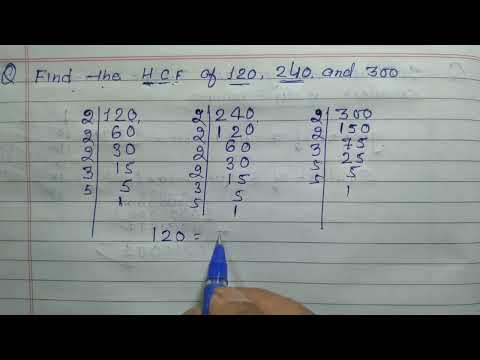 Q Find the HCF of 120, 240, and 300
2 120, 2 240, 2 300
2 60 2 120 2 150
2 30 2 60 3 75
3 15 2 30 5 25
5 5 3 15 5 5
1 5 5 1
1
120 =